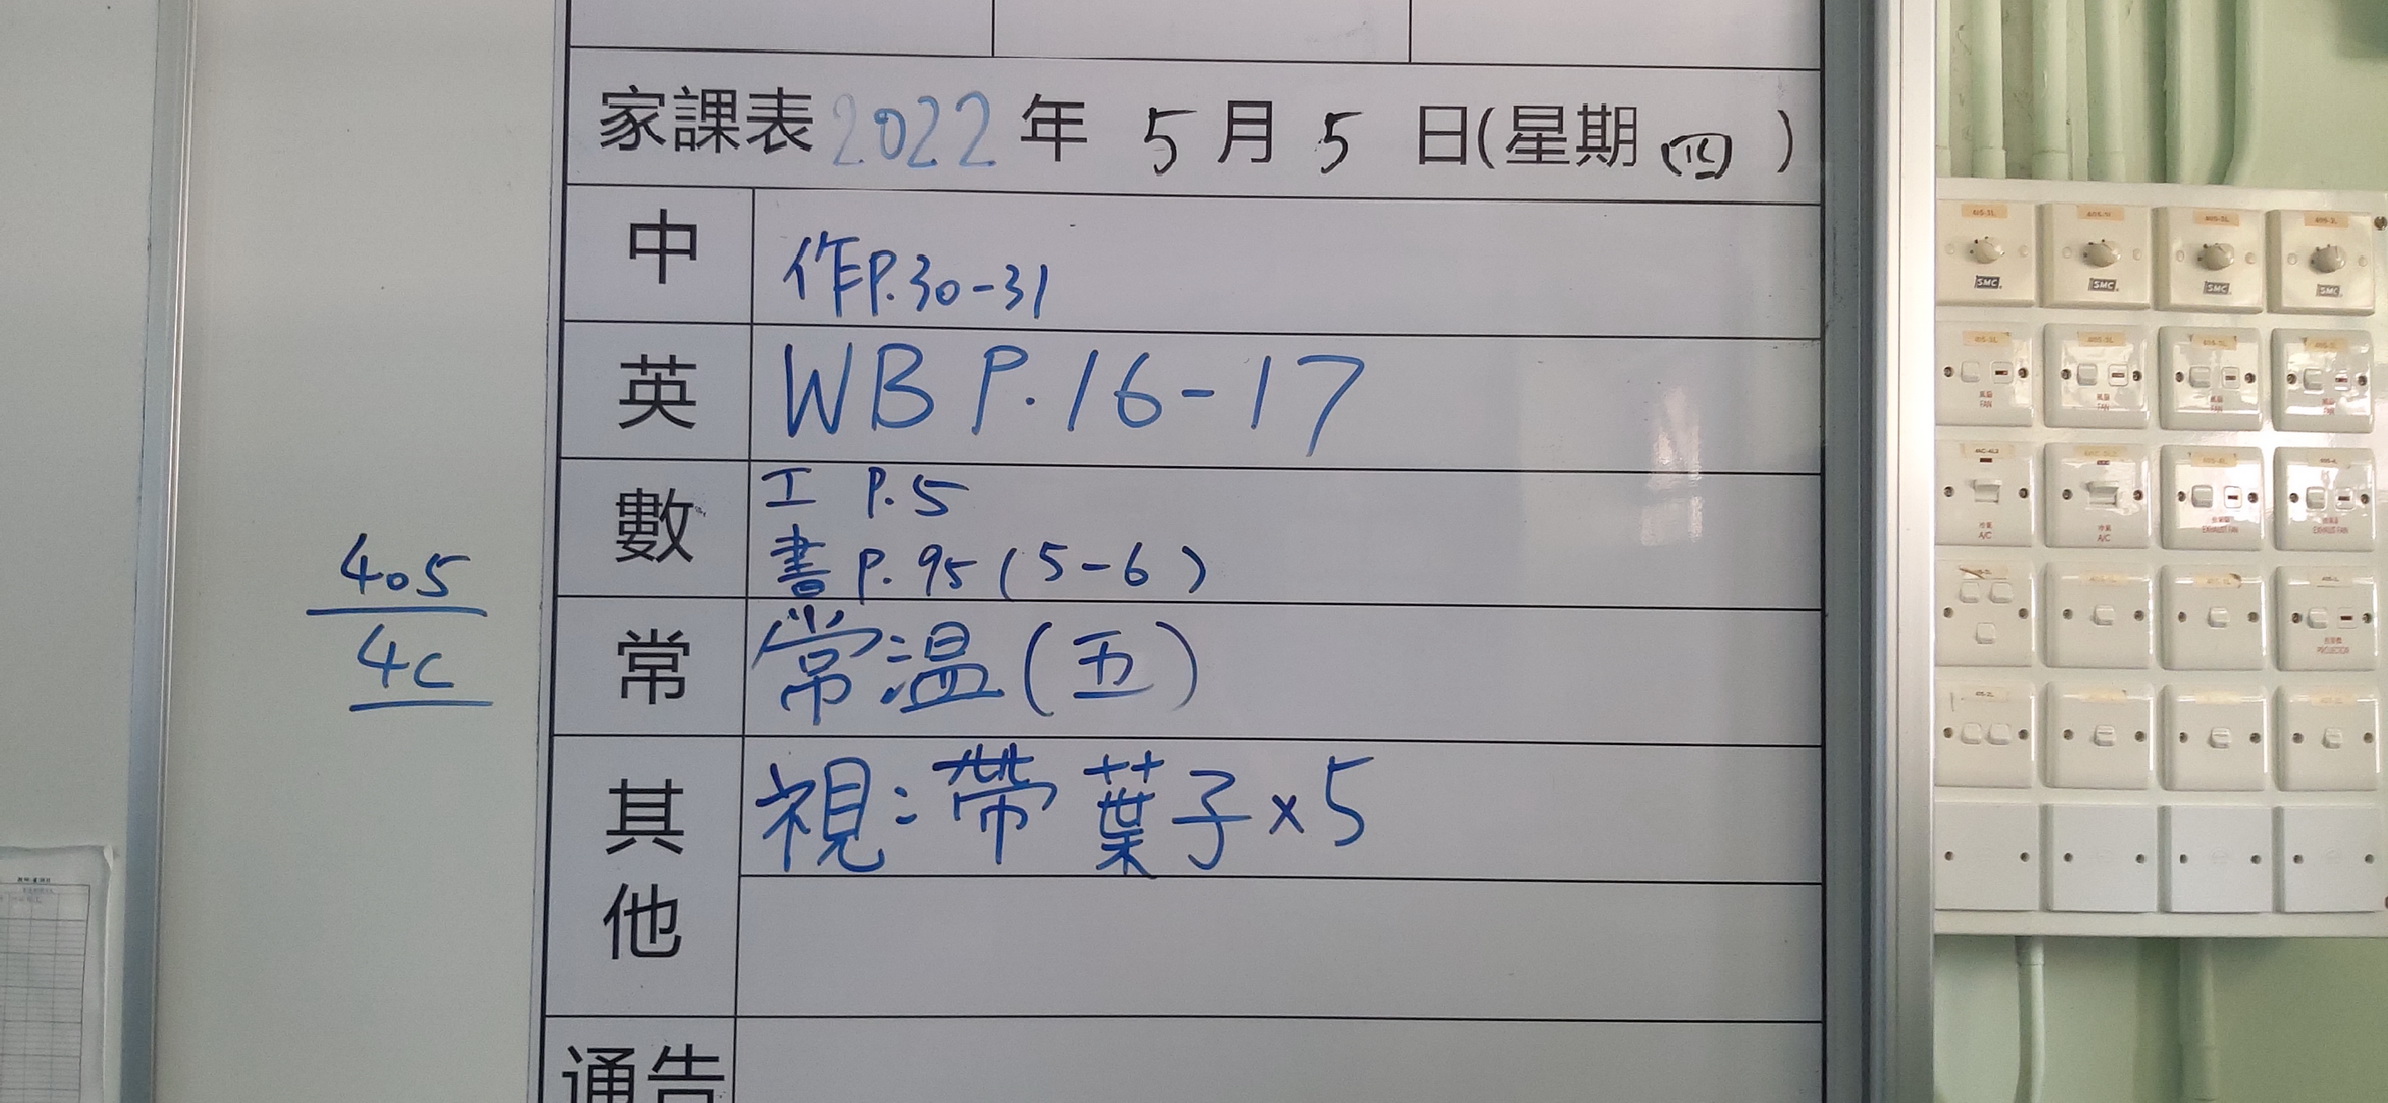 家課表 2022 年 5 月 5 日(星期 四 )
中 作P.30-31
英 WB P.16-17
數 工 P.5
書 P.95 (5-6)
常 常溫(五)
其他 視:帶葉子x5
通告
405
4C
SMC SMC SMC SMC
風扇 FAN
冷氣 A/C
冷氣 A/C
EXHAUST FAN
EXHAUST FAN
PROJECTOR